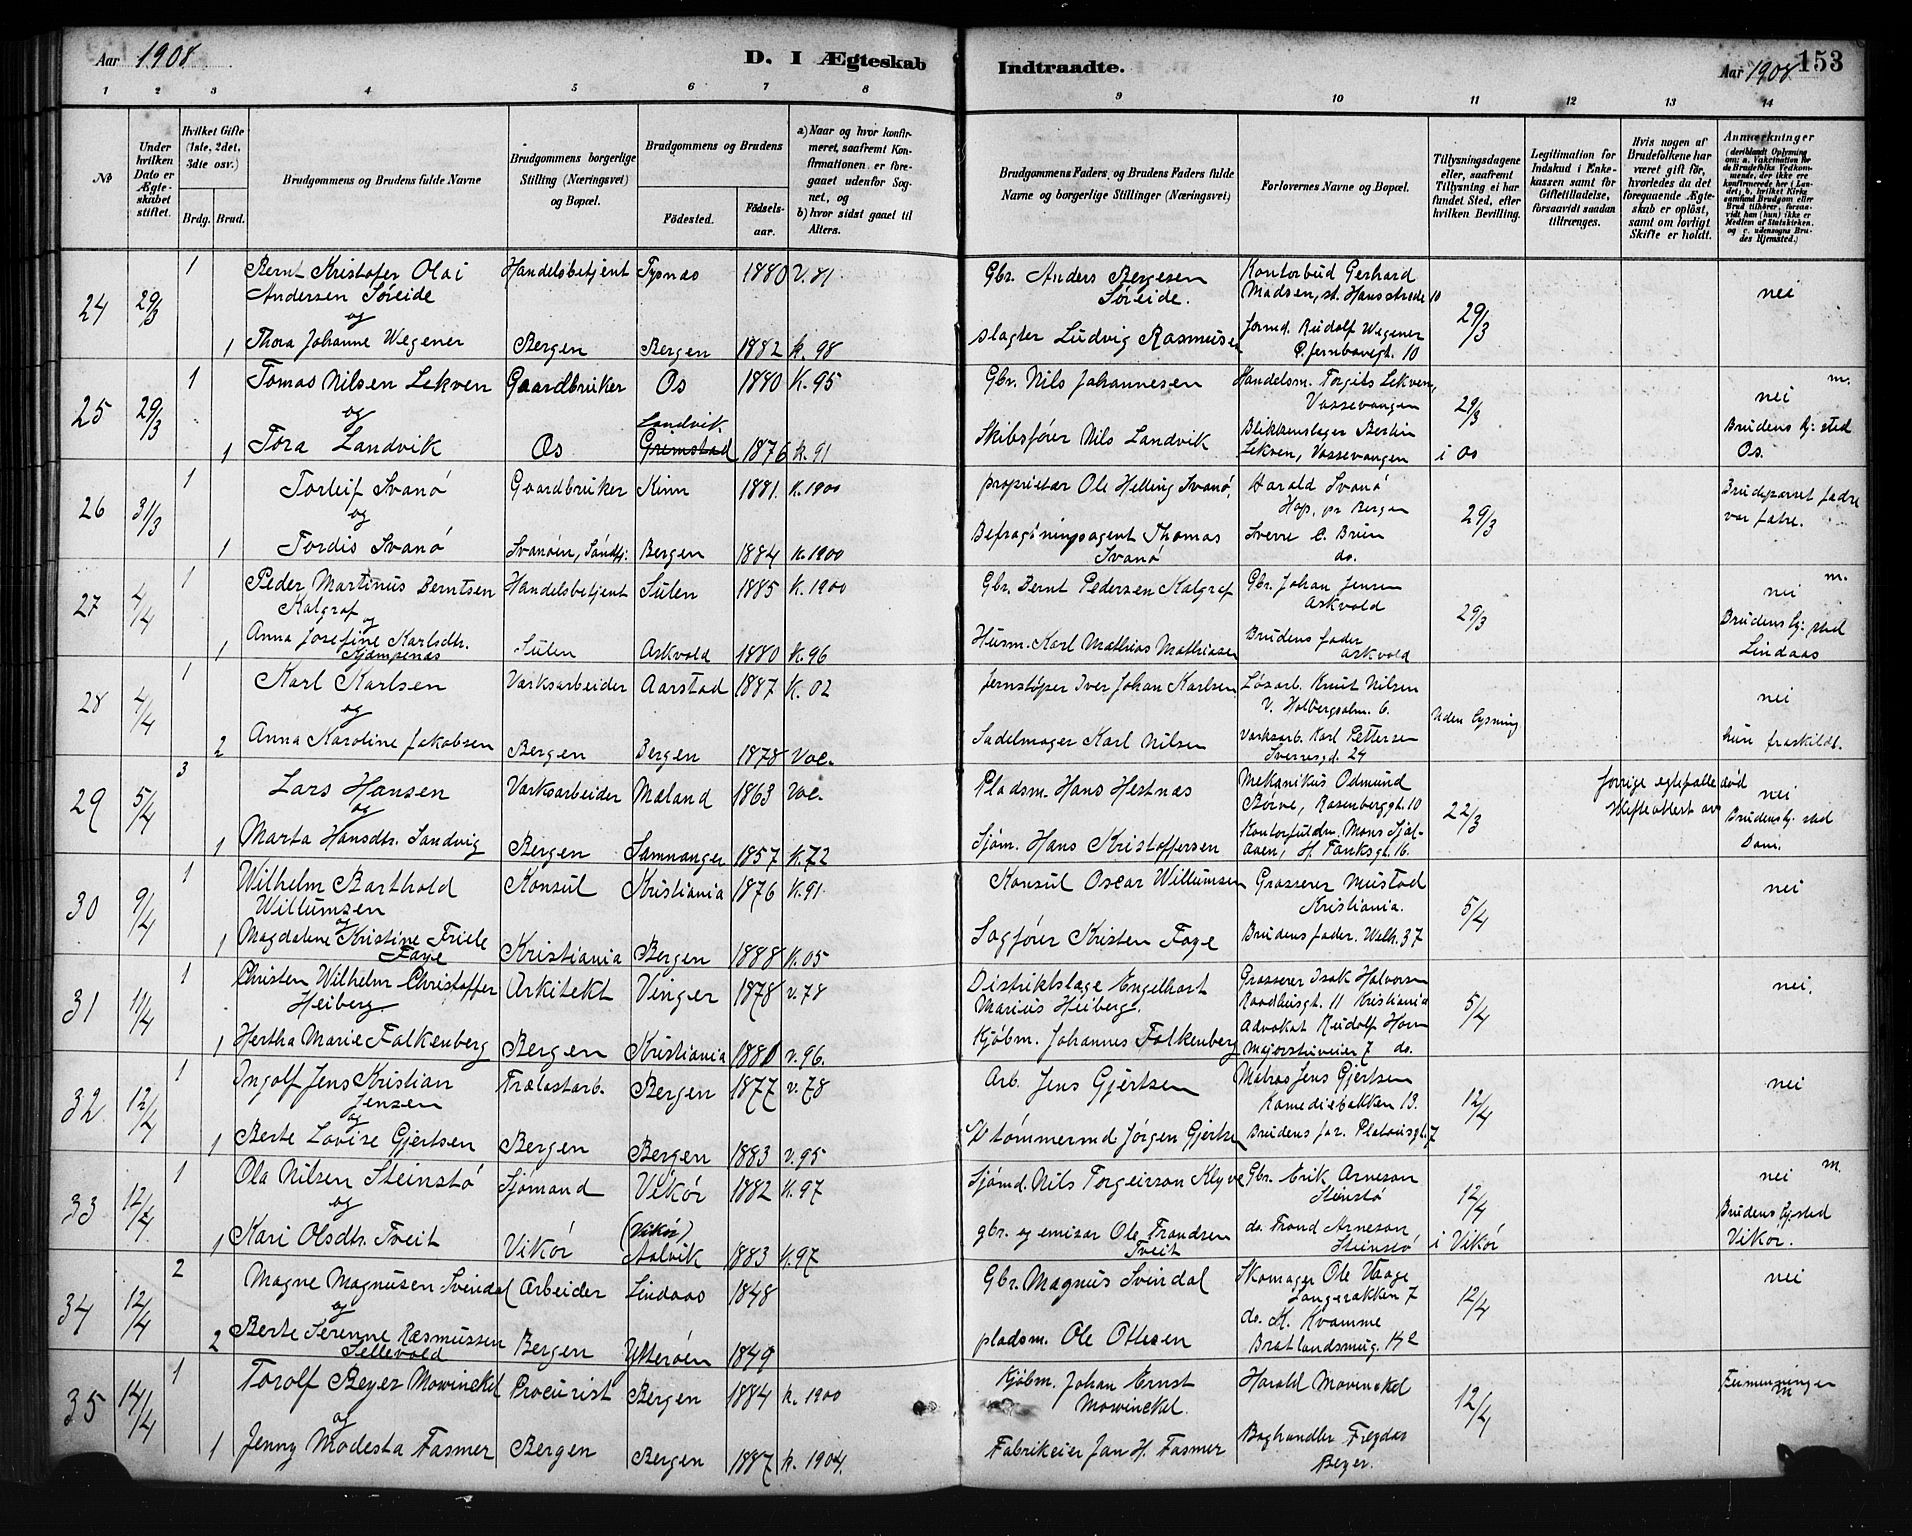 Aar 1908.
D. I Ægteskab Indtraadte.
153
Aar 1908.
1 2 3 4 5 6 7 8 9 10 11 12 13 14
No
Under hvilken Dato er Ægteskabet stiftet.
Hvilket Gifte (1ste, 2det, 3dte osv.)
Brdg. Brud.
Brudgommens og Brudens fulde Navne
Brudgommens borgerlige Stilling (Næringsvei) og Bopæl.
Brudgommens og Brudens
Fødested.
Fødselsaar.
a) Naar og hvor konfirmeret, saafremt Konfirmationen er foregaaet udenfor Sognet, og
b) hvor sidst gaaet til Alters.
Brudgommens Faders og Brudens Faders fulde Navne og borgerlige Stillinger (Næringsvei)
Forlovernes Navne og Bopæl.
Tillysningsdagene eller, saafremt Tillysning ei har fundet Sted, efter hvilken Bevilling.
Legitimation for Indskud i Enkekassen samt for Giftetilladelse, forsaavidt saadan tiltrænges.
Hvis nogen af Brudefolkene har været gift før, hvorledes da det foregaaende Ægteskab er opløst, samt om lovligt Skifte er holdt.
Anmærkninger (deriblandt Oplysning om: a. Vakcination for de Brudefolks Vedkommende, der ikke ere konfirmerede her i Landet; b. hvilket Kirkesamfund Brudgom eller Brud tilhører, forsaavidt han (hun) ikke er Medlem af Statskirken, og c. udensogns Brudes Hjemsted.)
24 29/3 1 Bernt Kristofer Olai Handelsbetjent Tysnæs 1880 V. 81 Gbr. Anders Børgesen Kontorbud Gerhard
Andersen Søreide Søreide. Madsen, st. Hansstræde 10 29/3 nei
og
1 Thora Johanne Wegener Bergen Bergen 1882 k. 98 slagter Ludvig Rasmusen formd. Rudolf Wegener
P. jernbavegt. 10
25 29/3 1 Tomas Nilsen Lekven Gaardbruker Os 1880 K. 95 Gbr. Nils Johannesen Handelsm. Torgils Lekven, m.
og Landvik Vossevangen 29/3 nei
1 Tora Landvik Os Gremstad 1876 k. 91 Skibsfører Nils Landvik Blikkenslager Bertin Brudens hj: sted
Lekven, Vossevangen i Os Os.
26 31/3 1 Torleif Svanø Gaardbruker Kinn 1881. K. 1900 proprietær Ole Helling Svanø, Harald Svanø Brudeparret fædre
og Hop, pr Bergen 29/3 var fætre.
1 Tordis Svanø Svanøen, Søndfj: Bergen 1884 K. 1900 Befragtningsagent Thomas Sverre C. Brun
Svanø do.
27 4/4 1 Peder Martinus Berntsen Handelsbetjent Sulen 1885 K. 1900 Gbr. Bernt Pedersen Kalgraf Gbr. Johan Jensen m.
Kalgraf og Askvold 29/3 nei
1 Anna Josefine Karlsdtr. Sulen Askvold 1880 K. 96 Husm. Karl Mathias Mathiasen Brudens fader Brudens hj: sted
Kjempenæs Askvold Lindaas
28 4/4 1 Karl Karlsen Værksarbeider Aarstad 1887 K. 02 Jernstøper Iver Johan Karlsen Løsarb. Knut Nilsen
og V. Holbergsalm. 6. Uden lysning nei
2 Anna Karoline Jakobsen Bergen Bergen 1878 Vac. Sadelmager Karl Nilsen Værksarb. Karl Pettersen hun fraskildt.
Sverresgd. 24
29 5/4 3 Lars Hansen Værksarbeider Mæland 1863 Vac. Pladsm. Hans Hestnæs Mekanikus Odmund forrige egtefælle død
og Børve, Rosenberggt. 10 22/3 nei
1 Marta Hansdtr. Sandvig Bergen Samnanger 1857 K. 72 Sjøm. Hans Kristoffersen Kontorfuldm. Mons Brudens hj. sted
H. Tanksgt. 16. Dom.
30 9/4 1 Wilhelm Barthold Konsul Kristiania 1876 K. 91. Konsul Oscar Willumsen Grosserer Mustad nei
Willumsen Kristiania. 5/4
og
1 Magdalene Kristine Friele Kristiania Bergen 1888 K. 05 Sagfører Kristen Faye Brudens fader. Welh. 37
Faye
31 11/4 1 Christen Wilhelm Christoffer Arkitekt Vinger 1878 v. 78 Distriktslæge Engelhart Grosserer Isak Halvorsen nei.
Heiberg Marius Heiberg. Raadhusgt. 11 Kristiania 5/4
1 Hertha Marie Falkenberg Bergen Kristiania 1880 v. 96. Kjøbm. Johannes Falkenberg Advokat Rudolf Horn
Majorstuveien 7 do.
32 12/4 1 Ingolf Jens Kristian Trælastarb. Bergen 1877 v. 78 Arb. Jens Gjertsen Matros Jens Gjertsen nei
Jensen Komediebakken 13. 12/4
og
1 Berte Lovise Gjertsen Bergen Bergen 1883 v. 95 tømmermd Jørgen Gjertsen Brudens far. Platousgt. 7
33 12/4. 1 Ola Nilsen Steinstø Sjømand Vikør 1882 K. 97 Sjømd. Nils Torgeirson Klyve Gbr. Erik Arneson m.
og Steinstø 12/4 nei
1 Kari Olsdtr. Tveit Vikør (Vikør) Aalvik 1883 K. 97 gbr. og emisær Ole Trondsen do. Trond Arneson i Vikør Brudens hj. sted
Tveit Steinstø Vikør.
34 12/4 2 Magne Magnusen Svindal Arbeider Lindaas 1848 Gbr. Magnus Svindal Skomager Ole Vaage nei
og 7 12/4
2 Berte Serenne Rasmussen Bergen Ytterøen 1849 pladsm. Ole Ottesen do. K. Kvamme
Sellevold Bratlandsmug. 142
35 14/4 1 Torolf Beyer Mowinckel Procurist Bergen 1884 k. 1900 Kjøbm. Johan Ernst Harald Mowinckel
og Mowinckel. 12/4
1 Jenny Modesta Fasmer Bergen Bergen 1887 k. 1904. Fabrikeier Jan H. Fasmer Boghandler
Beyer.